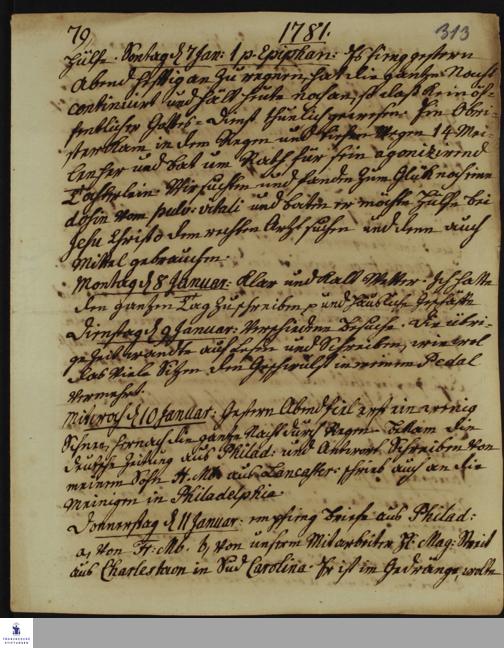 79 1781. 313
Hülfe. Sontag d 7 Jan: 1 p. Epiphan: Es fieng gestern
Abend hefftig an zu regnen, hat die gantze Nacht
continuirt und hält heute noch an, so daß kein öf-
fentlicher Gottes-Dienst thunlich gewesen. Ein Obri-
ster kam in dem Regen und Wegen 14 Mei-
len her und bat um Rath für sein agonizirend
Töchterlein. Wir suchten und fanden zum Glük noch eine
dosin vom pulv: vitali und baten er möchte Hülfe bei
Jesu Christo dem rechten Artzt suchen und denn auch
Mittel gebrauchen.
Montag d 8 Januar: Klar und kalt Wetter. Ich hatte
den gantzen Tag zu schreiben und häusliche Geschäfte
Dienstag d 9 Januar: Verschiedene Besuche. Die übri-
ge Zeit wandte auf Lesen und Schreiben, wiewol
das viele Sitzen den Geschwulst in meinem Pedal
vermehrt.
Mitwoch d 10 Januar: Gestern Abend fiel erst ein wenig
Schnee, hernach die gantze Nacht durch Regen. Bekam die
deutsche Zeitung aus Philad: und Antwort Schreiben von
meinem Sohn H. Mb. aus Lancaster: schrieb auch an die
Meinigen in Philadelphia.
Donnerstag d 11 Januar: empfieng Briefe aus Philad:
a, von H: Mb. b, von unserm Mitarbeiter H: Mag: Streit
aus Charlestown in Sud Carolina. Er ist im Gedränge, wolte
FRANCKESCHE
STIFTUNGEN